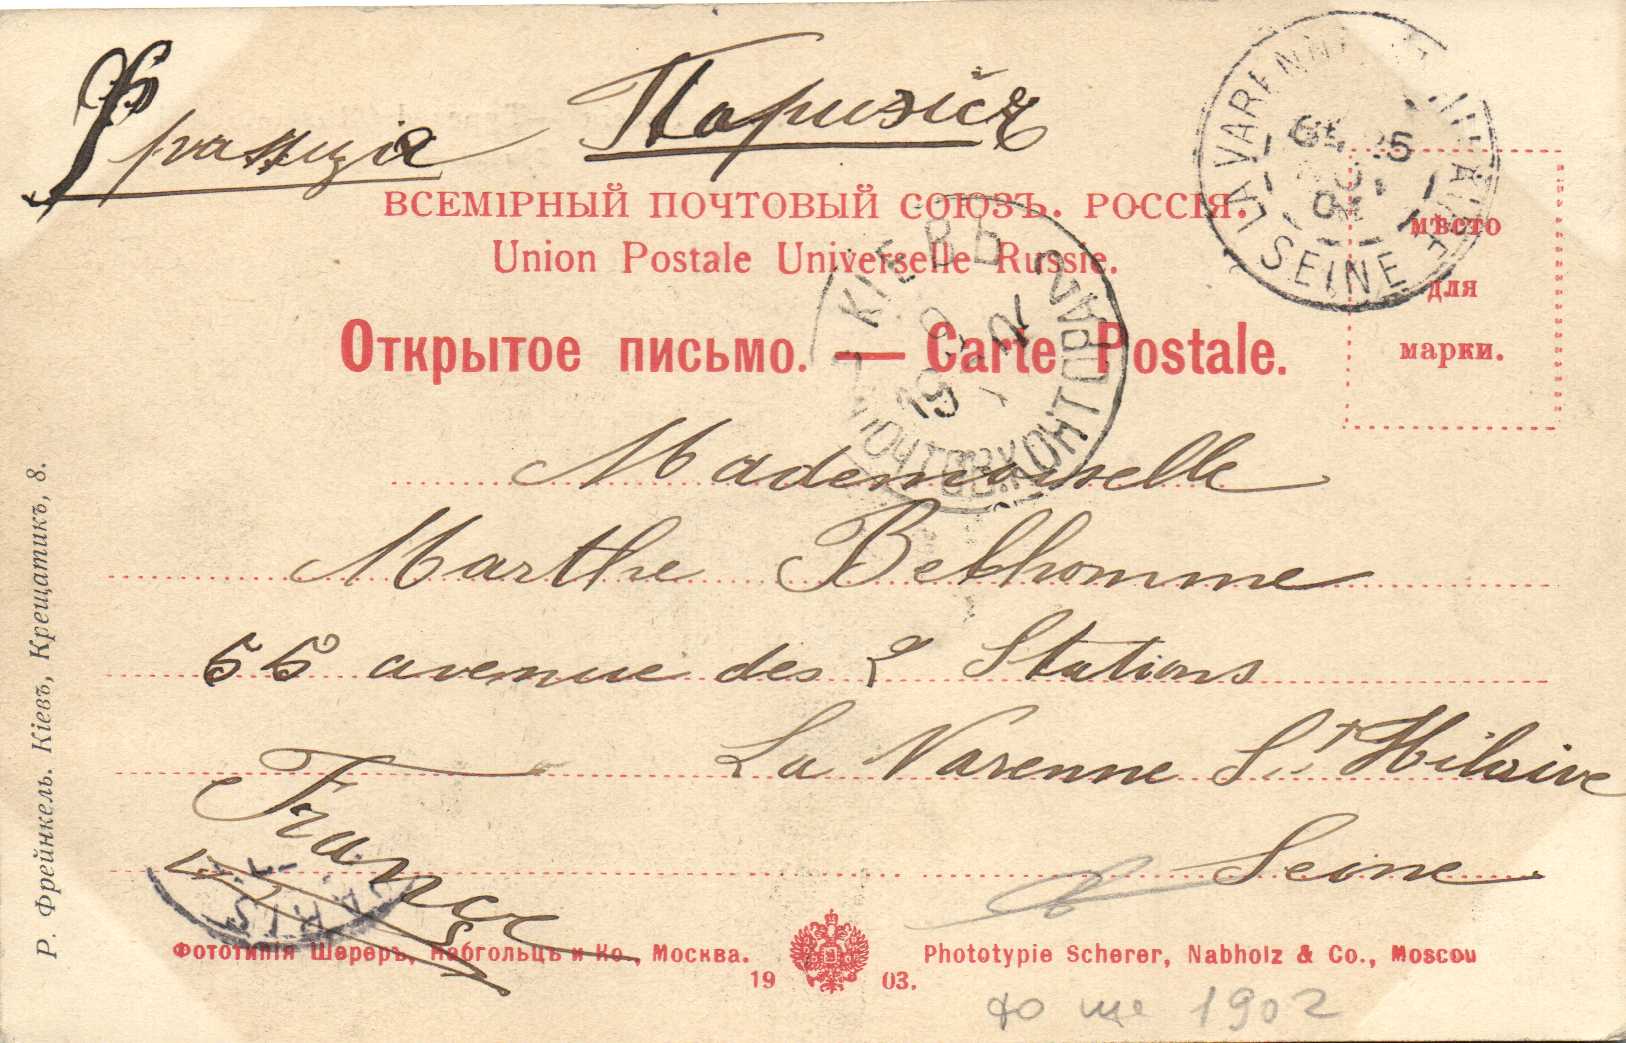 Франція Парижъ
LA VARENNE ST HILAIRE
25
SEINE
ВСЕМІРНЫЙ ПОЧТОВЫЙ СОЮЗЪ. РОССІЯ.
Union Postale Universelle Russie.
МѢСТО
ДЛЯ
МАРКИ.
КІЕВЪ
ПОЧТОВ. КОНТОРА
Открытое письмо. — Carte Postale.
Mademoiselle
Marthe Bellhomme
avenue des 2 Stations
La Varenne St Hilaire
Seine
France
PARIS
Р. Фрейнкель. Кіевъ, Крещатикъ, 8.
Фототипія Шереръ, Набгольцъ и Ко., Москва.
Phototypie Scherer, Nabholz & Co., Moscou
19 03.
1902